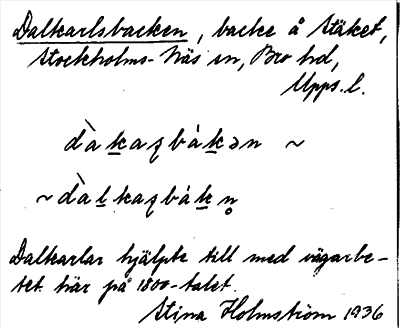 Dalkarlsbacken, backe å Stäket,
Stockholms-Näs sn, Bro hd,
Upps. l.
dàka̲ʐbák̲ən ~
~ dàl̲kaʐbák̲n̥
Dalkarlar hjälpte till med vägarbe-
tet här på 1800-talet.
Stina Holmström 1936